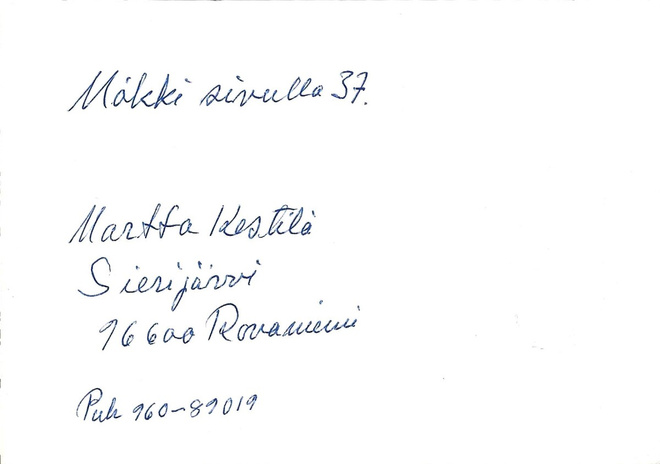 Mökki sivulla 37.
Martta Kestilä
Sierijärvi
96600 Rovaniemi
Puh 960-89019